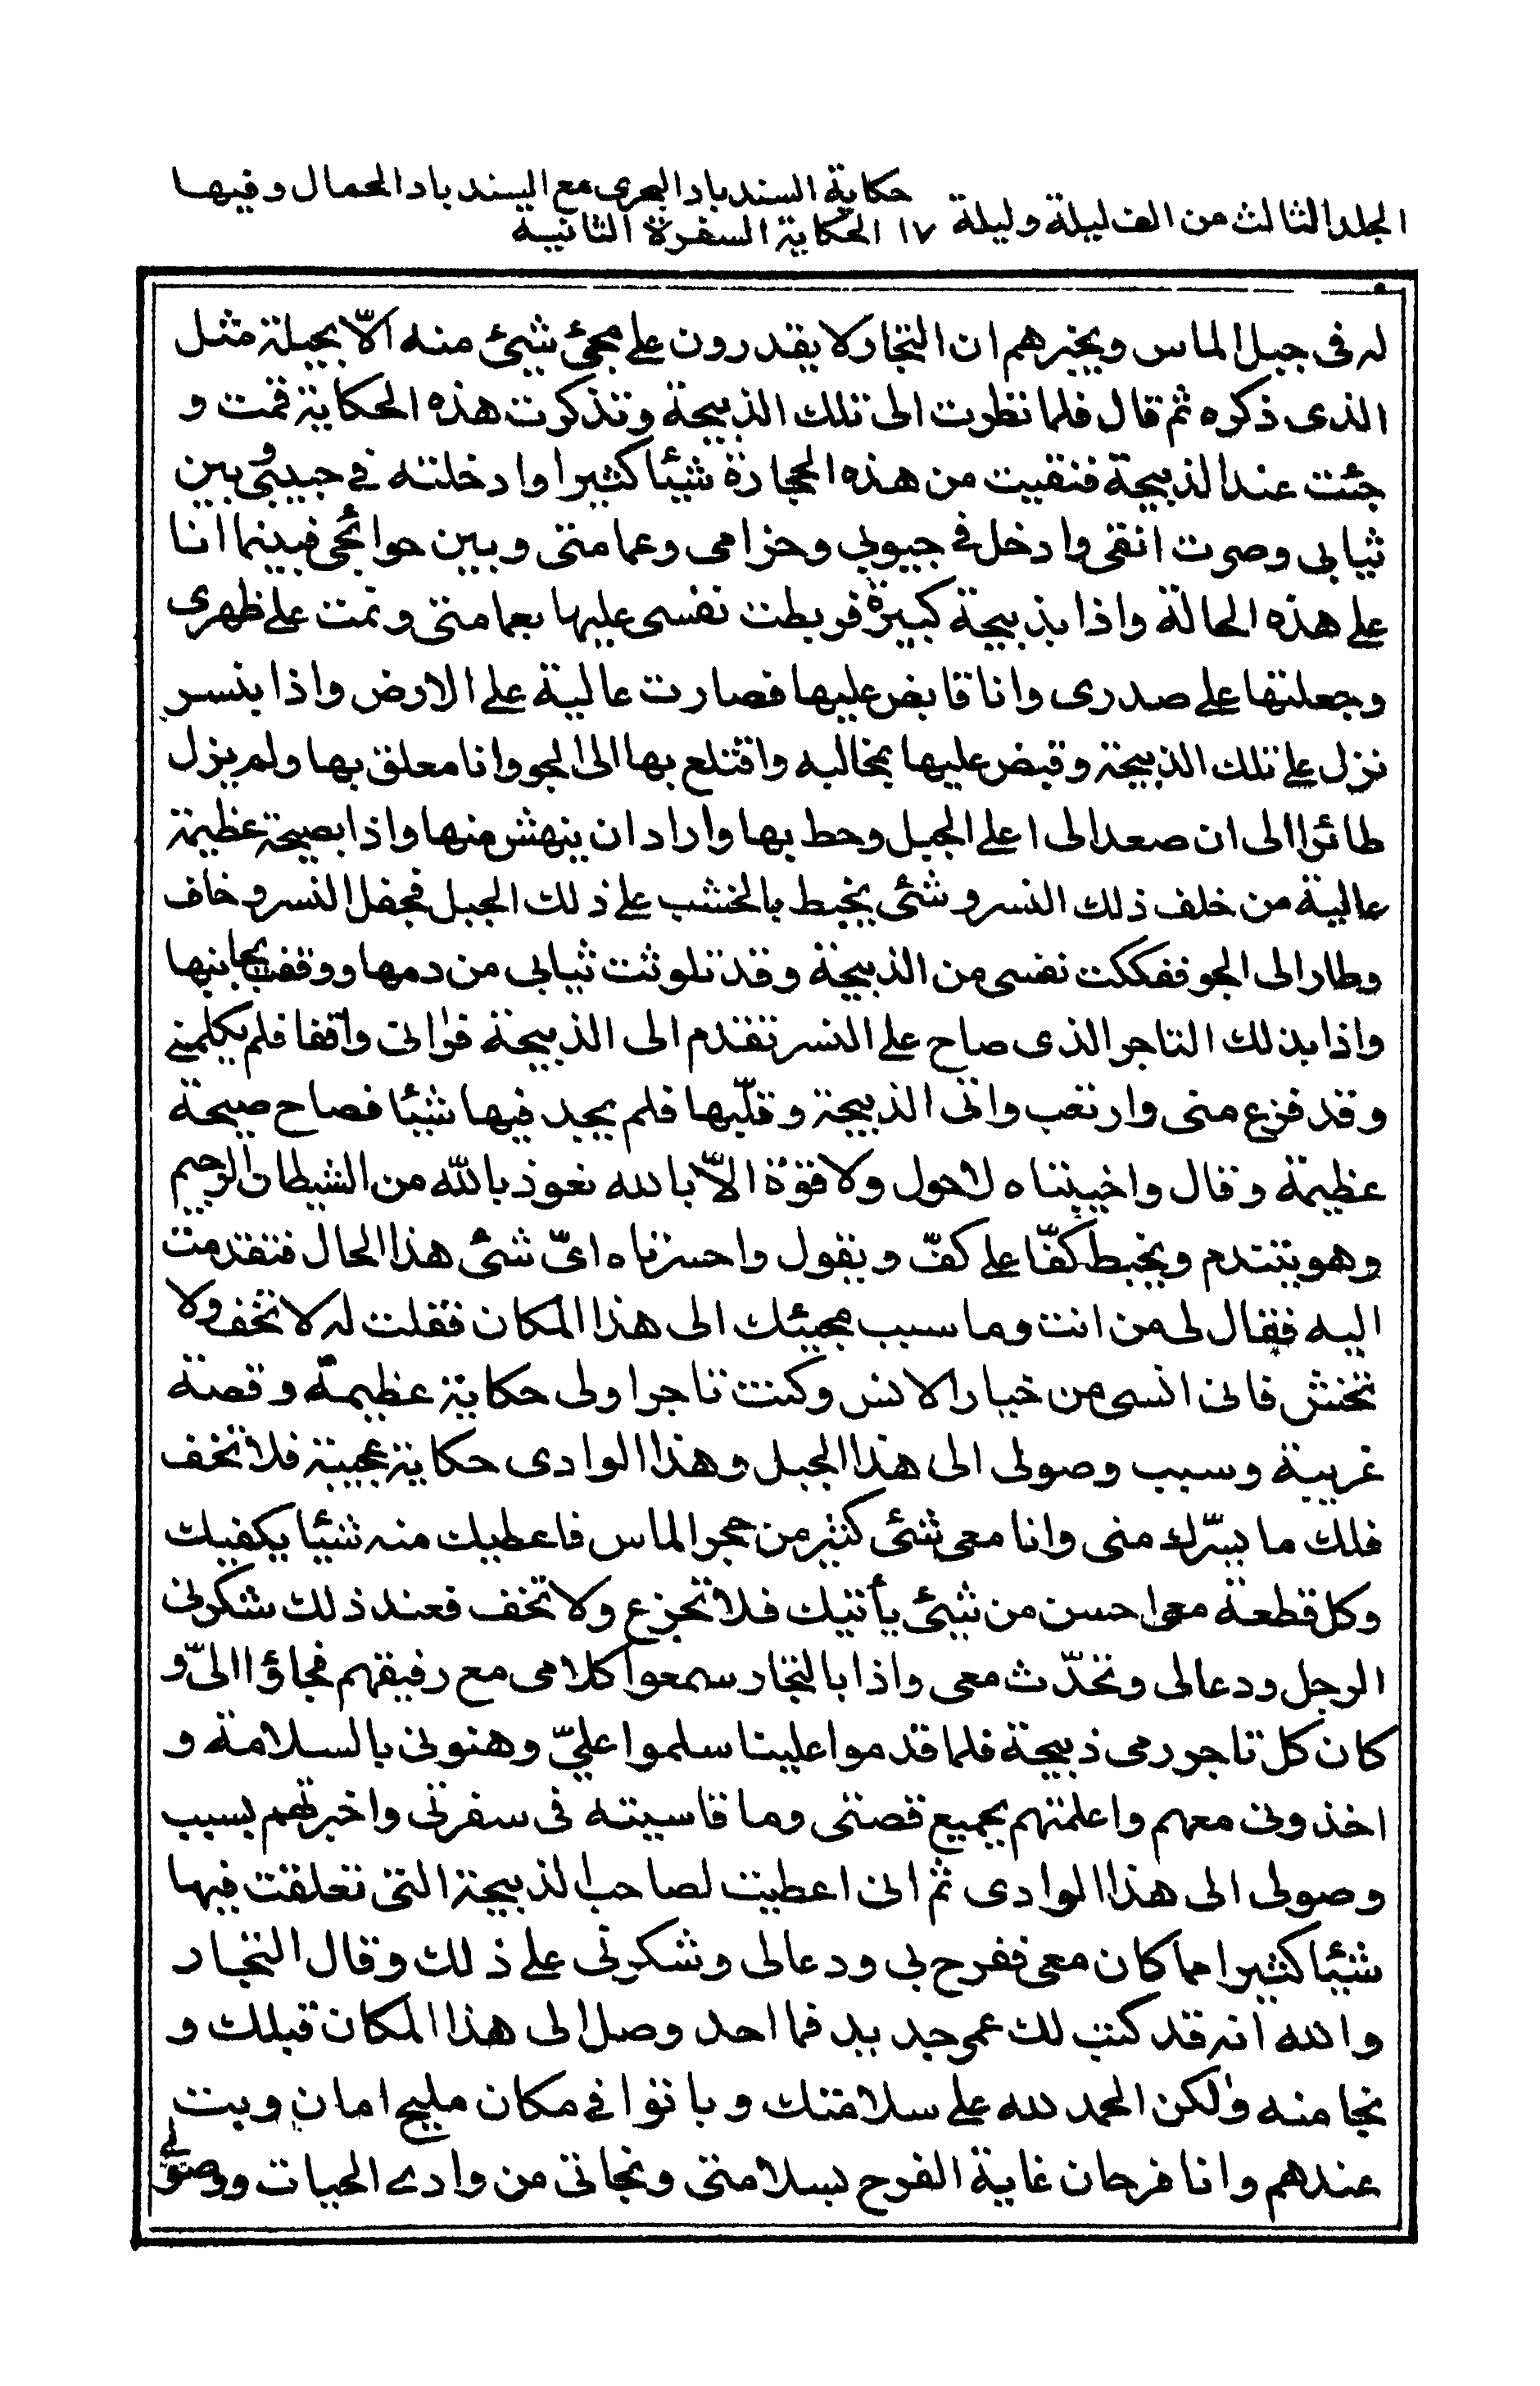 حكاية السندباد البحرى مع السندباد الحمال وفيها
المجلد الثالث من الف ليلة وليلة ١٧ الحكاية السفرة الثانية
له فى جبل الماس ويخبرهم ان التجار لا يقدرون على مجئ شيئ منه الّا بحيلة مثل
الذى ذكره ثم قال فلما نظرت الى تلك الذبيحة وتذكرت هذه الحكاية قمت و
جئت عند الذبيحة فنقيت من هذه الحجارة شيئا كثيرا وادخلته فى جيبى وبين
ثيابى وصرت انقى وادخل فى جيوبى وحزامى وعمامتى وبين حوائجى فبينما انا
على هذه الحالة واذا بذبيحة كبيرة فربطت نفسى عليها بعمامتى ونمت على ظهرى
وجعلتها على صدرى وانا قابض عليها فصارت عالية على الارض واذا بنسر
نزل على تلك الذبيحة وقبض عليها بمخالبه واقتلع بها الى الجو وانا معلق بها ولم يزل
طائرا الى ان صعد الى اعلى الجبل وحط بها واراد ان ينهش منها واذا بصيحة عظيمة
عالية من خلف ذلك النسر وشئى يخبط بالخشب على ذلك الجبل فجفل النسر وخاف
وطار الى الجو ففككت نفسى من الذبيحة وقد تلوثت ثيابى من دمها ووقفت بجانبها
واذا بذلك التاجر الذى صاح على النسر تقدم الى الذبيحة فرانى واقفا فلم يكلمنى
وقد فزع منى وارتعب واتى الذبيحة وقلّبها فلم يجد فيها شيئا فصاح صيحة
عظيمة وقال واخيبتاه لاحول ولا قوّة الّا بالله نعوذ بالله من الشيطان الرجيم
وهو يتندم ويخبط كفّا على كفّ ويقول واحسرتاه اىّ شئى هذا الحال فتقدمت
اليه فقال لى من انت وما سبب مجيئك الى هذا المكان فقلت له لا تخف ولا
تخش فانى انسى من خيار الانس وكنت تاجرا ولى حكاية عظيمة وقصة
غريبة وسبب وصولى الى هذا الجبل وهذا الوادى حكاية عجيبة فلا تخف
فلك ما يسرّك منى وانا معى شئى كثير من حجر الماس فاعطيك منه شيئا يكفيك
وكل قطعة معى احسن من شيئ يأتيك فلا تجزع ولا تخف فعند ذلك شكرنى
الرجل ودعا لى وتحدّث معى واذا بالتجار سمعوا كلامى مع رفيقهم فجاؤا الىّ و
كان كل تاجر رمى ذبيحة فلما قدموا علينا سلموا علىّ وهنونى بالسلامة و
اخذونى معهم واعلمتهم بجميع قصتى وما قاسيته فى سفرتى واخبرتهم بسبب
وصولى الى هذا الوادى ثم انى اعطيت لصاحب الذبيحة التى تعلقت فيها
شيئا كثيرا مما كان معى ففرح بى ودعا لى وشكرنى على ذلك وقال التجار
والله انه قد كتب لك عمر جديد فما احد وصل الى هذا المكان قبلك و
نجا منه ولكن الحمد لله على سلامتك وباتوا فى مكان مليح امان وبت
عندهم وانا فرحان غاية الفرح بسلامتى ونجاتى من وادى الحيات ووصولى